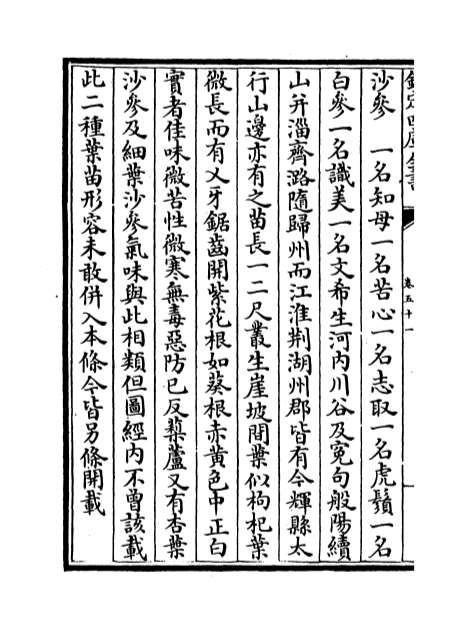 欽定四庫全書
卷五十一
沙參　一名知母一名苦心一名志取一名虎鬚一名
白參一名識美一名文希生河内川谷及寃句般陽續
山并淄齊潞隨歸州而江淮荆湖州郡皆有今輝縣太
行山邊亦有之苗長一二尺叢生崖坡間葉似枸杞葉
微長而有乂牙鋸齒開紫花根如葵根赤黄色中正白
實者佳味微苦性微寒無毒惡防已反藜蘆又有杏葉
沙參及細葉沙參氣味與此相類但圖經内不曾該載
此二種葉苗形容未敢併入本條今皆另條開載